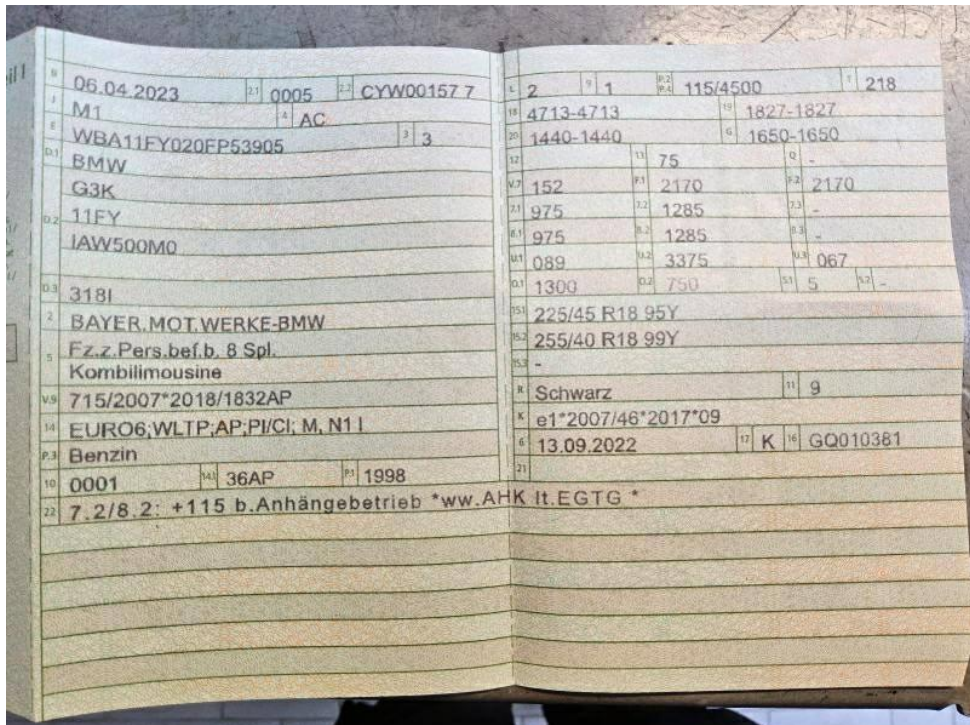 eil I
B 06.04.2023 2.1 0005 2.2 CYW00157 7
J M1 4 AC
E WBA11FY020FP53905 3 3
D.1 BMW
G3K
D.2 11FY
IAW500M0
D.3 318I
2 BAYER.MOT.WERKE-BMW
5 Fz.z.Pers.bef.b. 8 Spl.
Kombilimousine
V.9 715/2007*2018/1832AP
14 EURO6;WLTP;AP;PI/CI; M, N1 I
P.3 Benzin
10 0001 14.1 36AP P.1 1998
22 7.2/8.2: +115 b.Anhängebetrieb *ww.AHK lt.EGTG *
L 2 9 1 P.2 P.4 115/4500 T 218
18 4713-4713 19 1827-1827
20 1440-1440 G 1650-1650
12 13 75 Q -
V.7 152 F.1 2170 F.2 2170
7.1 975 7.2 1285 7.3 -
8.1 975 8.2 1285 8.3 -
U.1 089 U.2 3375 U.3 067
O.1 1300 O.2 750 S.1 5 S.2 -
15.1 225/45 R18 95Y
15.2 255/40 R18 99Y
15.3 -
R Schwarz 11 9
K e1*2007/46*2017*09
6 13.09.2022 17 K 16 GQ010381
21